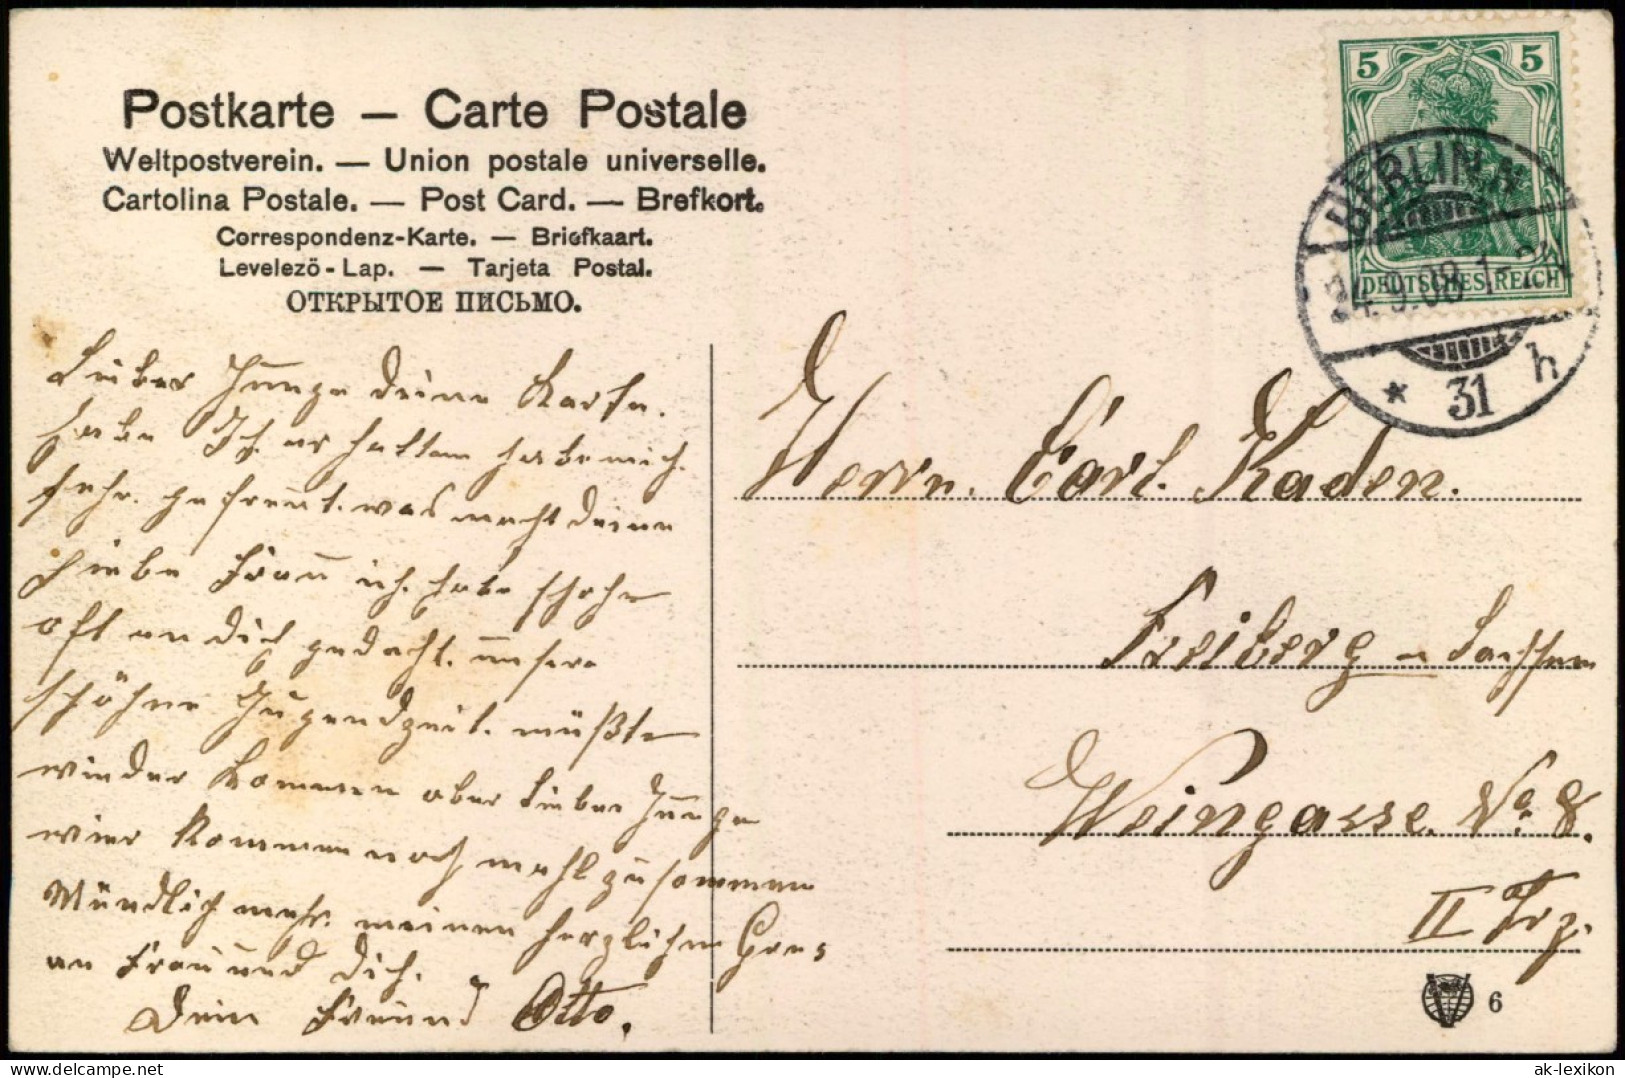 Postkarte — Carte Postale
Weltpostverein. — Union postale universelle.
Cartolina Postale. — Post Card. — Brefkort.
Correspondenz-Karte. — Briefkaart.
Levelezö-Lap. — Tarjeta Postal.
ОТКРЫТОЕ ПИСЬМО.
5 5
DEUTSCHES REICH
BERLIN N
24.9.08 1-2N
* 31 h
Lieber Junge deine Karte.
habe Ich. erhalten habe mich.
sehr. gefreut. was macht deine
liebe Frau ich. habe schohn
oft an dich gedacht. unsere
schöhne Jugendzeit. müßte
wieder kommen aber lieber Junge
wier kommen noch mahl zusammen
Mündlich mehr. meinen herzlichen Grus
an Frau und dich.
Dein Freund Otto.
Herrn. Carl. Kaden.
Freiberg Sachsen
Weingasse. No. 8.
II Trz.
6
ak-lexikon